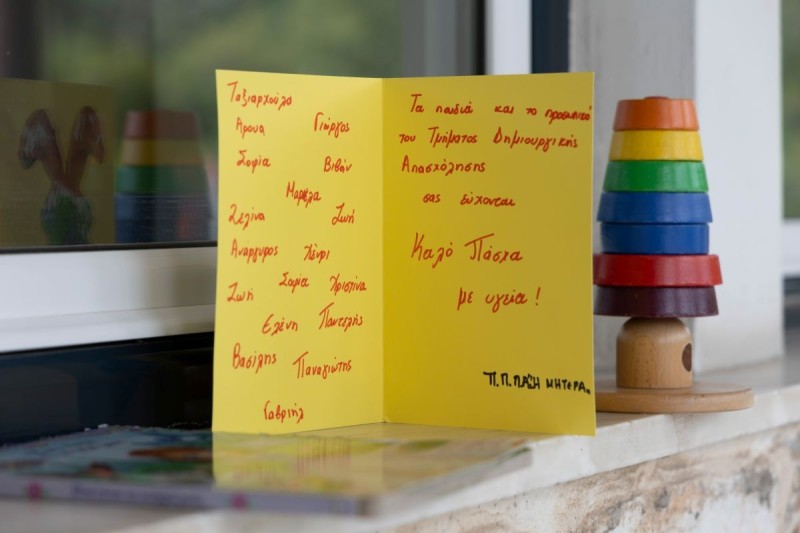 Ταξιαρχούλα
Άρουα Γιώργος
Σοφία Βιβήν
Μαρέλα
Σελίνα Ζωή
Ανάργυρος Χένρι
Ζωή Σοφία Χριστίνα
Ελένη Παντελής
Βασίλης Παναγιώτης
Γαβριήλ
Τα παιδιά και το προσωπικό
του Τμήματος Δημιουργικής
Απασχόλησης
σας εύχονται
Καλό Πάσχα
με υγεία!
Π.Π. ΠΑΣΗ ΜΗΤΕΡΑ..